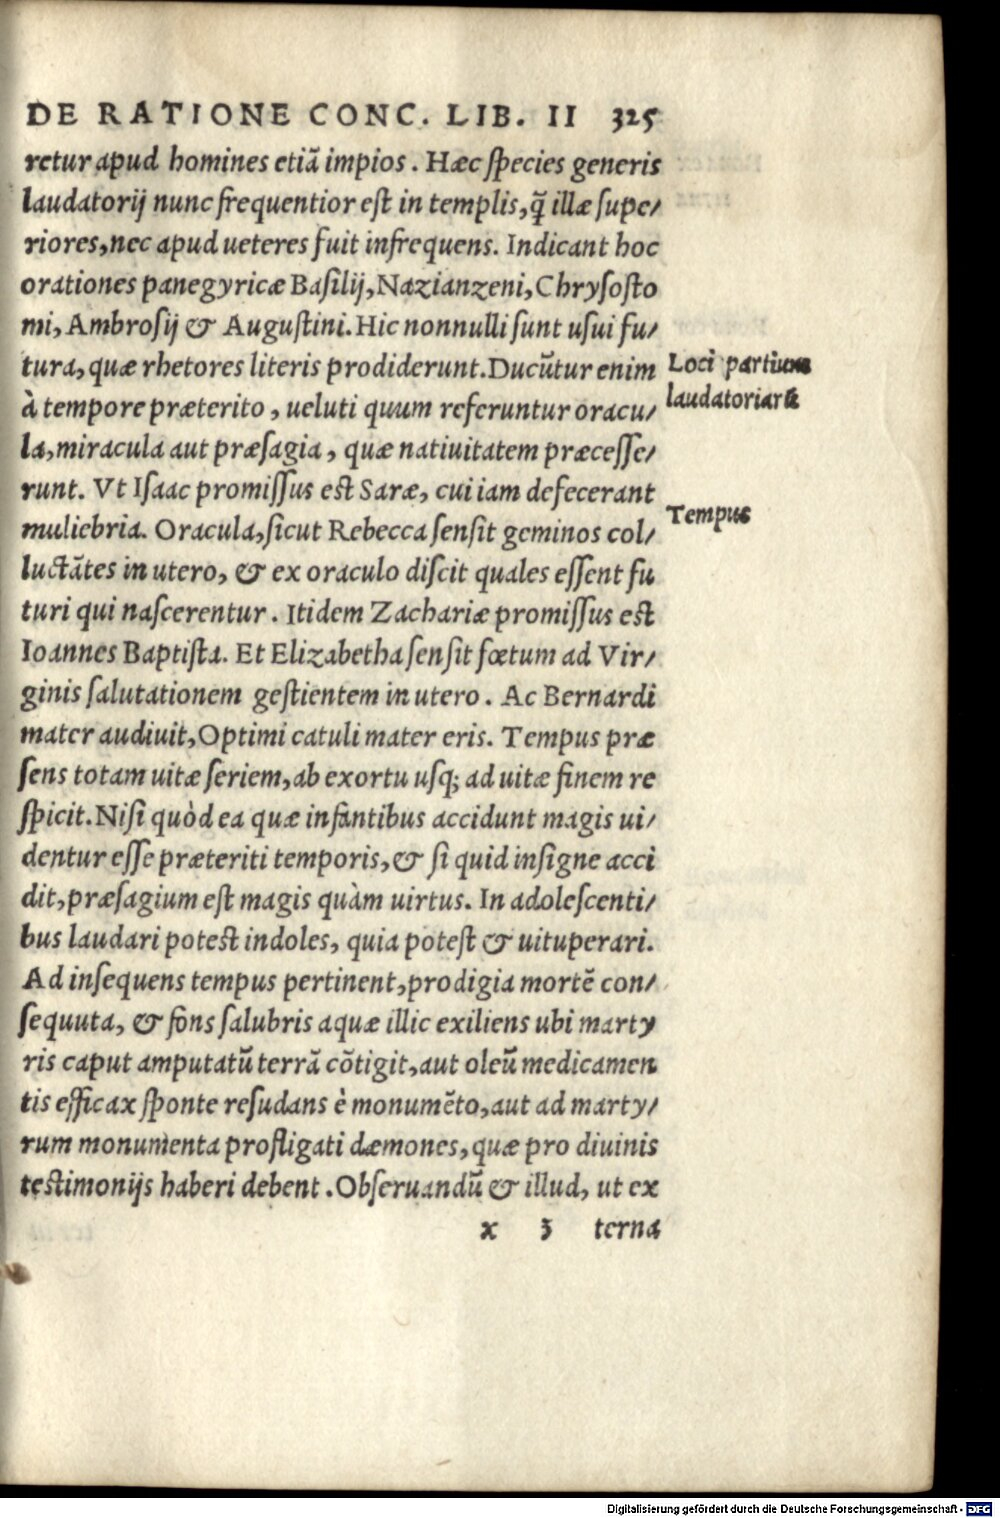 DE RATIONE CONC. LIB. II 325
retur apud homines etiā impios. Hæc species generis
laudatorij nunc frequentior est in templis, q̃ illæ supe/
riores, nec apud ueteres fuit infrequens. Indicant hoc
orationes panegyricæ Basilij, Nazianzeni, Chrysosto
mi, Ambrosij & Augustini. Hic nonnulli sunt usui fu/
tura, quæ rhetores literis prodiderunt. Ducūtur enim
à tempore præterito, ueluti quum referuntur oracu/
la, miracula aut præsagia, quæ natiuitatem præcesse/
runt. Vt Isaac promissus est Saræ, cui iam defecerant
muliebria. Oracula, sicut Rebecca sensit geminos col/
luctātes in utero, & ex oraculo discit quales essent fu
turi qui nascerentur. Itidem Zachariæ promissus est
Ioannes Baptista. Et Elizabetha sensit fœtum ad Vir/
ginis salutationem gestientem in utero. Ac Bernardi
mater audiuit, Optimi catuli mater eris. Tempus præ
sens totam uitæ seriem, ab exortu usq; ad uitæ finem re
spicit. Nisi quòd ea quæ infantibus accidunt magis ui/
dentur esse præteriti temporis, & si quid insigne acci
dit, præsagium est magis quàm uirtus. In adolescenti/
bus laudari potest indoles, quia potest & uituperari.
Ad insequens tempus pertinent, prodigia mortē con/
sequuta, & fons salubris aquæ illic exiliens ubi marty
ris caput amputatū terrā cōtigit, aut oleū medicamen
tis efficax sponte resudans è monumēto, aut ad marty/
rum monumenta profligati dæmones, quæ pro diuinis
testimonijs haberi debent. Obseruandū & illud, ut ex
x 3 terna
Loci partium
laudatoriarū
Tempus
Digitalisierung gefördert durch die Deutsche Forschungsgemeinschaft - DFG